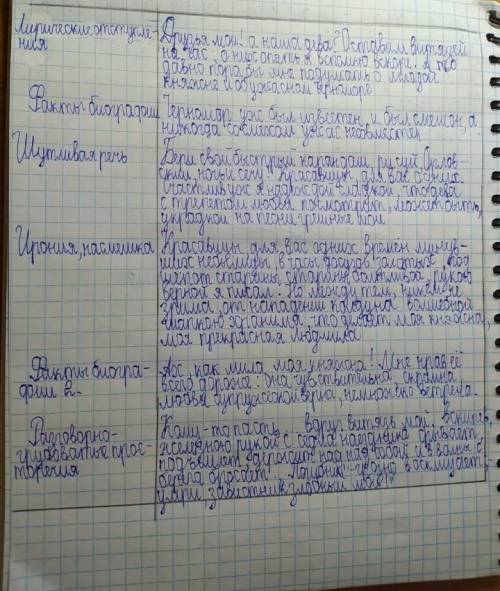 Лирические отступле-
ния
Друзья мои! а наша дева? Оставим витязей
на час; о них опять я вспомню вскоре. А то
давно пора бы мне подумать о младой
княжне и об ужасном Черноморе
Факты биографии
Черномор уж был известен, и был смешон, а
никогда со смехом ужас несовместен
Шутливая речь
Бери свой быстрый карандаш, рисуй Орлов-
ский, ночь и сечу. Красавицы, для вас одних
Счастлив уж я надеждой сладкой, что дева
с трепетом любви посмотрит, может быть,
украдкой на песни грешные мои
Ирония, насмешка
Красавицы, для вас одних времён минув-
ших небылицы, в часы досугов золотых, под
шёпот старины болтливой, рукою
верной я писал. Но между тем, никем не
зрима, от нападений колдуна волшебной
шапкою хранима, что делает моя княжна,
моя прекрасная Людмила
Факты биогра-
фии 2.
Ах, как мила моя княжна! Мне нрав её
всего дороже: она чувствительна, скромна,
любви супружеской верна, немножко ветрена.
Разговорно-
грубоватые прос-
торечия
Кому-то пасть... вдруг витязь мой, вскипев,
железною рукой с седла наездника срывает,
подъемлет, держит над собой и в волны с
берега бросает. "Погибни! - грозно восклицает; -
умри, завистник злобный мой!"